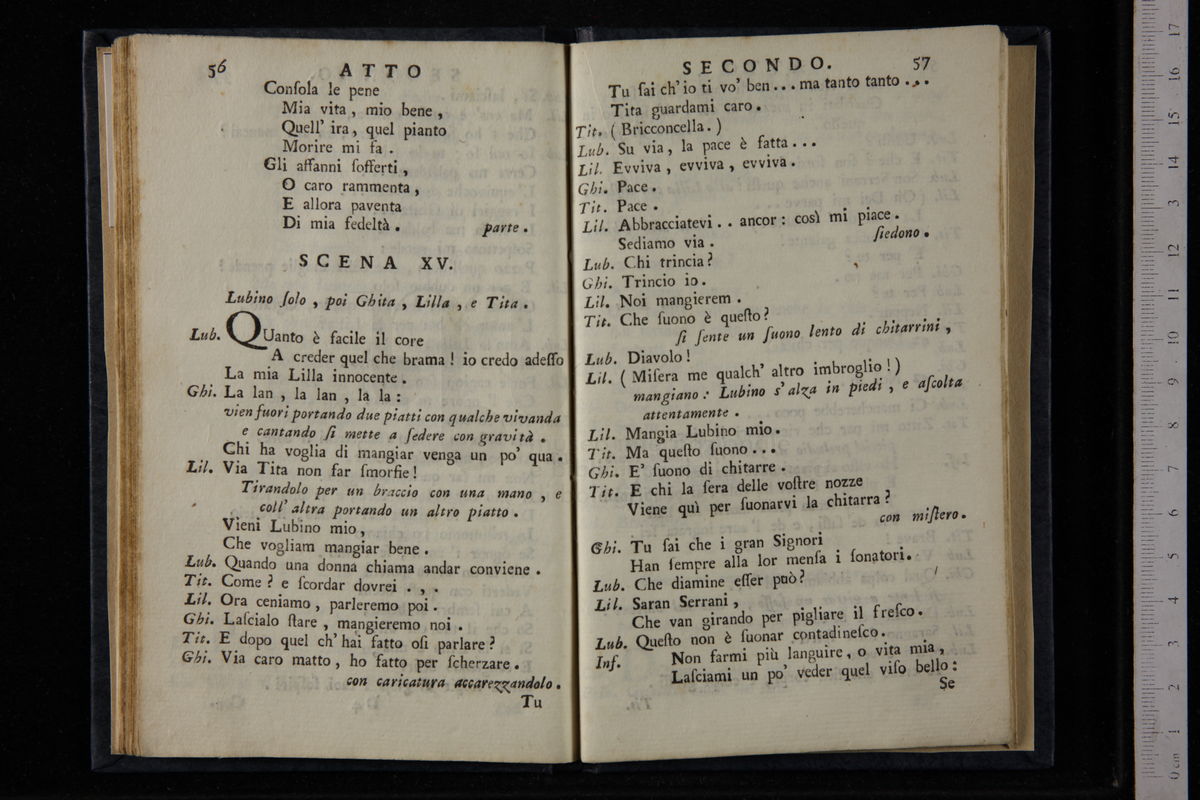 56
ATTO
Conſola le pene
Mia vita, mio bene,
Quell' ira, quel pianto
Morire mi fa.
Gli affanni ſofferti,
O caro rammenta,
E allora paventa
Di mia fedeltà. parte.
SCENA XV.
Lubino ſolo, poi Ghita, Lilla, e Tita.
Lub. QUanto è facile il core
A creder quel che brama! io credo adeſſo
La mia Lilla innocente.
Ghi. La lan, la lan, là la:
vien fuori portando due piatti con qualche vivanda
e cantando ſi mette a ſedere con gravità.
Chi ha voglia di mangiar venga un po' qua.
Lil. Via Tita non far ſmorfie!
Tirandolo per un braccio con una mano, e
coll' altra portando un altro piatto.
Vieni Lubino mio,
Che vogliam mangiar bene.
Lub. Quando una donna chiama andar conviene.
Tit. Come? e ſcordar dovrei ...
Lil. Ora ceniamo, parleremo poi.
Ghi. Laſcialo ſtare, mangieremo noi.
Tit. E dopo quel ch' hai fatto oſi parlare?
Ghi. Via caro matto, ho fatto per ſcherzare.
con caricatura accarezzandolo.
Tu
SECONDO.
57
Tu ſai ch' io ti vo' ben... ma tanto tanto...
Tita guardami caro.
Tit. (Bricconcella.)
Lub. Su via, la pace è fatta...
Lil. Evviva, evviva, evviva.
Ghi. Pace.
Tit. Pace.
Lil. Abbracciatevi.. ancor: così mi piace.
Sediamo via. ſiedono.
Lub. Chi trincia?
Ghi. Trincio io.
Lil. Noi mangierem.
Tit. Che ſuono è queſto?
ſi ſente un ſuono lento di chitarrini,
Lub. Diavolo!
Lil. (Miſera me qualch' altro imbroglio!)
mangiano: Lubino s' alza in piedi, e aſcolta
attentamente.
Lil. Mangia Lubino mio.
Tit. Ma queſto ſuono...
Ghi. E' ſuono di chitarre.
Tit. E chi la ſera delle voſtre nozze
Viene quì per ſuonarvi la chitarra?
con miſtero.
Ghi. Tu ſai che i gran Signori
Han ſempre alla lor menſa i ſonatori.
Lub. Che diamine eſſer può?
Lil. Saran Serrani,
Che van girando per pigliare il freſco.
Lub. Queſto non è ſuonar contadineſco.
Inſ. Non farmi più languire, o vita mia,
Laſciami un po' veder quel viſo bello:
Se
0 cm 1 2 3 4 5 6 7 8 9 10 11 12 13 14 15 16 17